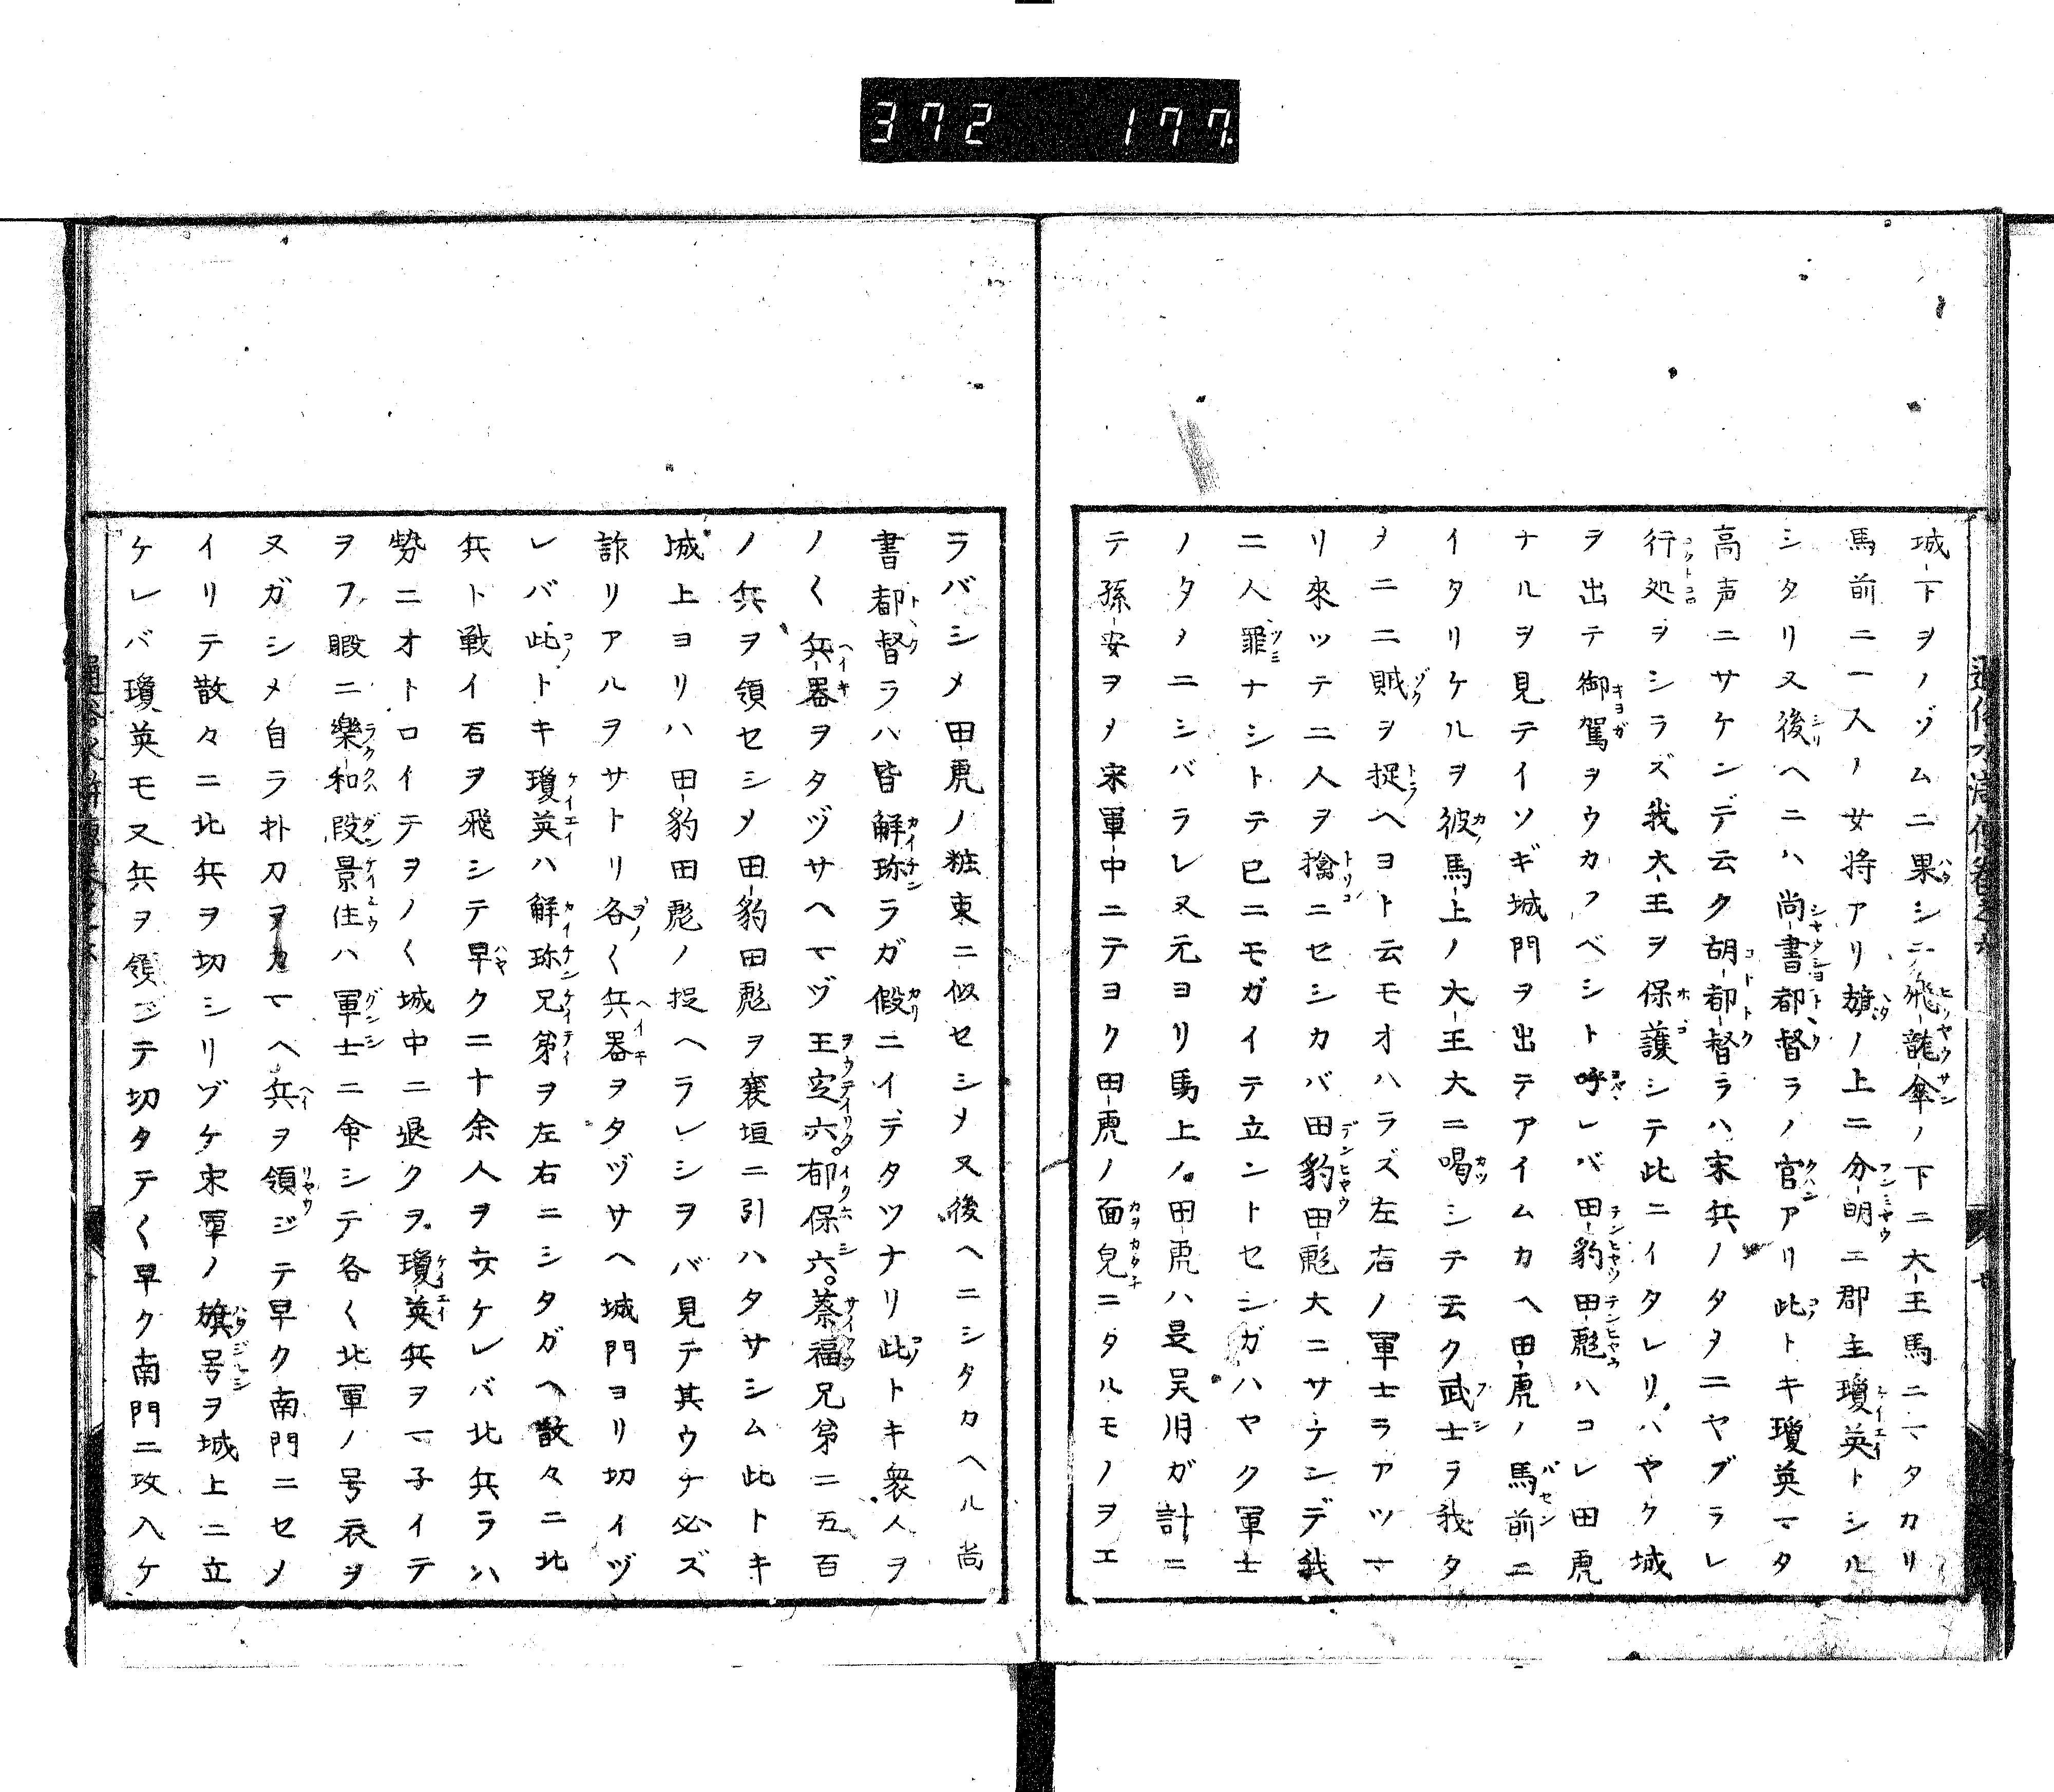 372 177
城下ヲノゾムニ果シテ飛龍傘ノ下ニ大王馬ニマタカリ
馬前ニ一人ノ女将アリ旗ノ上ニ分明ニ郡主瓊英トシル
シタリ又後ヘニハ尚書都督ラノ官アリ此トキ瓊英マタ
高声ニサケンデ云ク胡都督ラハ宋兵ノタメニヤブラレ
行処ヲシラズ我大王ヲ保護シテ此ニイタレリハヤク城
ヲ出テ御駕ヲウカフベシト呼レバ田豹田彪ハコレ田虎
ナルヲ見テイソギ城門ヲ出テアイムカヘ田虎ノ馬前ニ
イタリケルヲ彼馬上ノ大王大ニ喝シテ云ク武士ラ我タ
メニ二賊ヲ捉ヘヨト云モオハラズ左右ノ軍士ラアツマ
リ來ッテ二人ヲ擒ニセシカバ田豹田彪大ニサケンデ我
二人罪ナシトテ已ニモガイテ立ントセシガハヤク軍士
ノタメニシバラレヌ元ヨリ馬上ノ田虎ハ是吴用ガ計ニ
テ孫安ヲメ宋軍中ニテヨク田虎ノ面皃ニタルモノヲエ
ラバシメ田虎ノ粧束ニ似セシメ又後ヘニシタカヘル尚
書都督ラハ皆解珎ラガ假ニイデタツナリ此トキ衆人ヲ
ノ〱兵器ヲタヅサヘマヅ王定六郁保六蔡福兄弟ニ五百
ノ兵ヲ領セシメ田豹田彪ヲ襄垣ニ引ハタサシム此トキ
城上ヨリハ田豹田彪ノ捉ヘラレシヲバ見テ其ウチ必ズ
詐リアルヲサトリ各〱兵器ヲタヅサヘ城門ヨリ切イヅ
レバ此トキ瓊英ハ解珎兄弟ヲ左右ニシタガヘ散々ニ北
兵ト戦イ石ヲ飛シテ早ク二十余人ヲ安ケレバ北兵ラハ
勢ニオトロイテヲノ〱城中ニ退クヲ瓊英兵ヲマ子イテ
ヲフ暇ニ樂和段景住ハ軍士ニ命シテ各〱北軍ノ号衣ヲ
ヌガシメ自ラ朴刀ヲカマヘ兵ヲ領ジテ早ク南門ニセメ
イリテ散々ニ北兵ヲ切シリゾケ宋軍ノ旗号ヲ城上ニ立
ケレバ瓊英モ又兵ヲ領ジテ切タテ〱早ク南門ニ攻入ケ